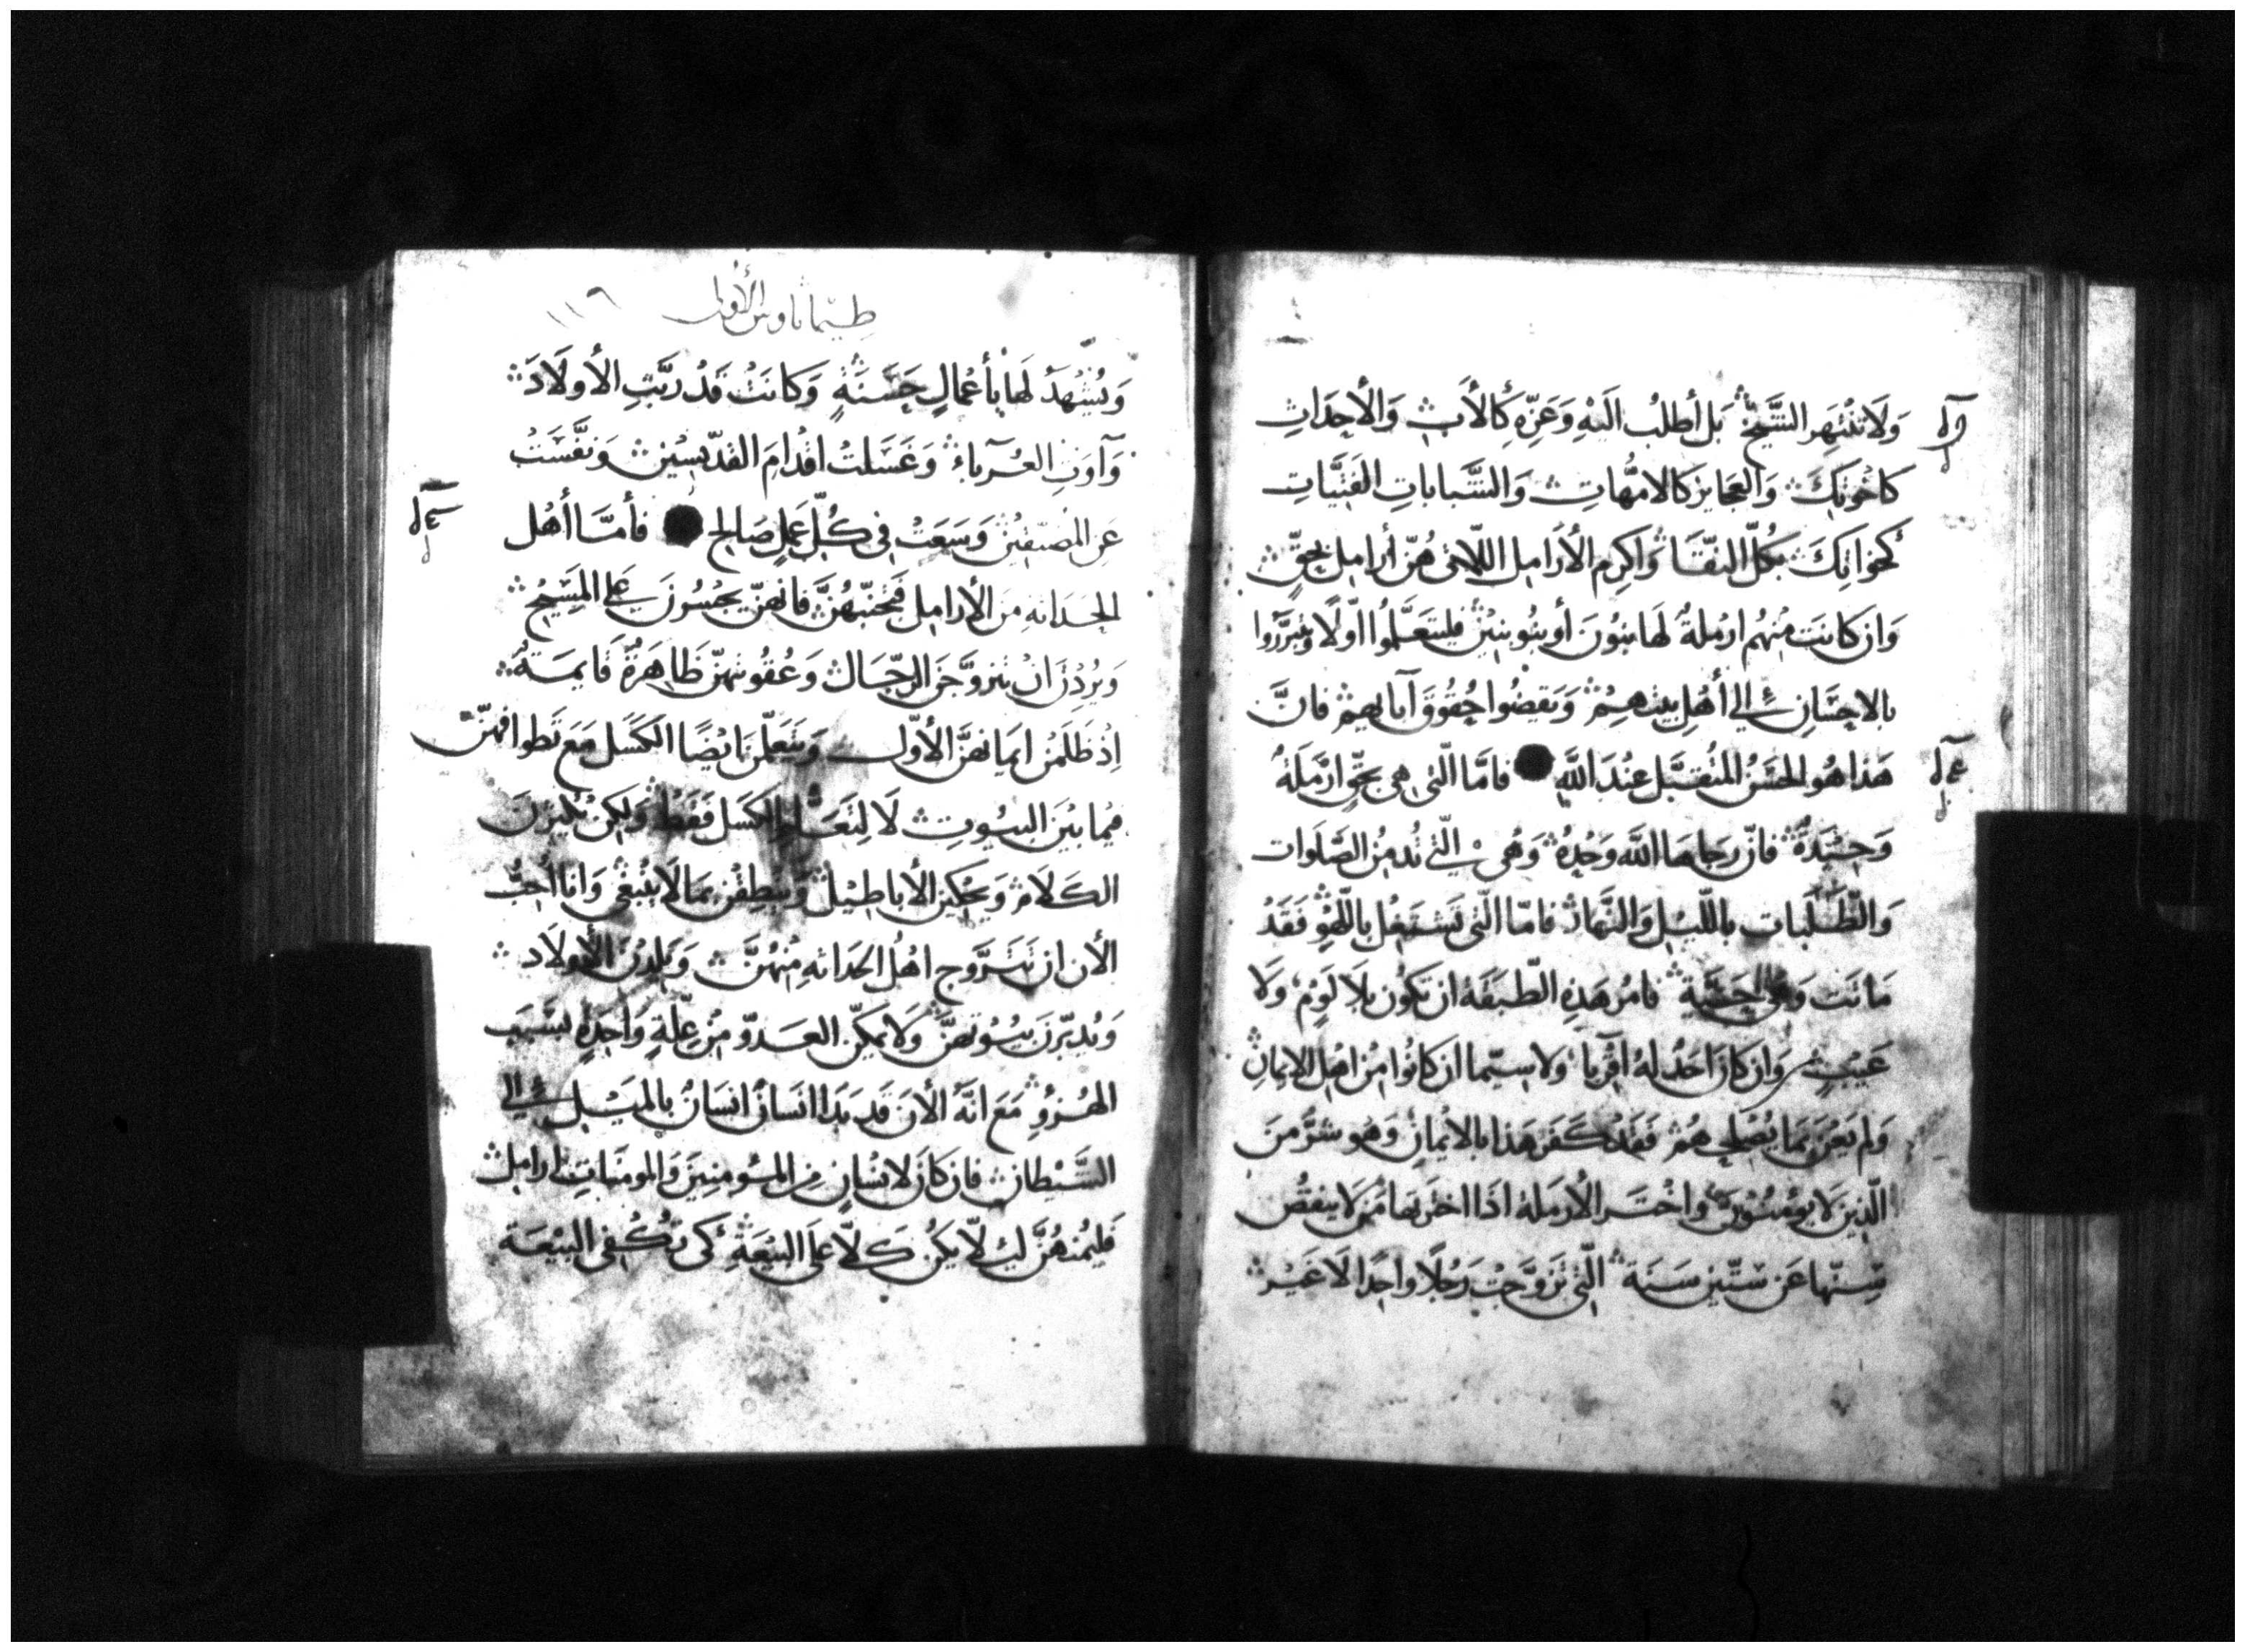 وَلَا تَنْتَهِرِ الشَّيْخَ بَل أطلبُ الَيْهِ وَعَزِّه كَالأَبِ وَالأحِدَاثِ
كاخْوَتِكَ وَالعَجايز كالامَّهاتِ وَالشَّباباتِ الفَتِيَّاتِ
كَخَوَاتِكَ بكلّ النقَا وَاكرِم الأَرَامِل اللّاتى هُنّ أرامِل بحقٍّ
وَان كانَت مِنهُم ارْمِلةٌ لَها بَنُونَ أو بَنُو بنِيْنَ فليتعَلّمُوا اوّلًا ويبَرَّروا
بالاحِسَانِ الي أهْلِ بيتهِمْ وَيَقضُوا حُقُوقَ آبايهِم فانَّ
هَذا هُو الحسَنُ المُتقبَّل عِنْدَ اللَّهِ فامَّا الّتى هى بحقٍّ ارْمَلَةٌ
وَحِيْدَةٌ فانّ رَجاها اللَّه وَحْدهُ وَهْى الّتى تُدمِنُ الصَّلَوات
وَالطّلِبات باللّيْلِ وَالنَّهارِ فامّا الّتى تَشتَغِلُ باللّهْوِ فَقَدْ
مَاتَت وَهْى حَيَّية فامُر هَذِهِ الطّبَقَة ان تكُون بلَا لَوْمٍ وَلَا
عَيْبٍ وَان كانَ احَدٌ لهُ اقْرِبَا وَلا سيّما ان كانُوا مِن اهْل الايمانِ
وَلم يَعنَ بمَا يُصْلِحهُمْ فَقَدْ كَفَرَ هَذا بالايْمَانِ وَهُو شرٌّ مِنَ
الّذِينَ لَا يومِنُوْنَ وَاخْتَرِ الأرمَلة اذَا اختَرتَها مِمَّن لَا ينقُصُ
سِنّها عَن سِتّين سَنَةً الّتى تَزوّجَتْ رَجُلًا واحِدًا لَا غَيْر
طيماثاوس الأول ١١٦
وَيُشْهَدُ لَها بأعْمالٍ حَسَنَةٍ وَكانَتْ قَدْ ربَّتِ الأولَادَ
وَآوَتِ الغُربَاءَ وَغَسَلتْ اقْدامَ القدّيسِين وَنفَّسَتْ
عَنِ المُضيّقِيْنَ وَسَعَتْ فى كلّ عَمَلٍ صَالِح فأمّا أهْل
الحَدَاثةِ مِنَ الأرامِل فَتجَنّبهُنَّ فانهنّ يجْسُرنَ عَلى المَسِيْحِ
وَيُرِدْنَ انْ يتزوَّجنَ الرّجَالَ وَعُقوبتهنّ ظاهَرةٌ قايمَةٌ
اِذْ ظَلَمْنَ ايمانهنَّ الأوّلَ وَيتعَلّمنَ ايْضًا الكَسَل مَعَ تَطوافهنّ
فِيْما بَيْنَ البيُوتِ لَا لِتَعَلّم الكسَل فَقَط وَلكن يُكثِرنَ
الكَلَامَ وَيحْكِين الأباطِيْلَ وَينْطِقْنَ بمَا لَا ينْبَغى وَانا أحِبُّ
الأن ان تَتَزوّج اهْلُ الحَدَاثةِ مِنْهُنَّ وَيَلدْنَ الأولَاد
وَيُدبّرنَ بيُوتهنَّ وَلَا يمكِنّ العَدوّ مِنْ علّةٍ وَاحِدةٍ بسَبَب
الهُزُوِ مَعَ انّهُ الأنَ قَد بَدَا انسَانٌ انسَانٌ بالمَيْلِ الي
الشَّيْطانِ فان كانَ لانْسَانٍ مِن المُومِنِينَ وَالمومِنَاتِ ارامِل
فَليَمُنْهُنَّ ليلّا يكُن كَلّا عَلى البيْعَةِ كى تَكْفى البيْعَة